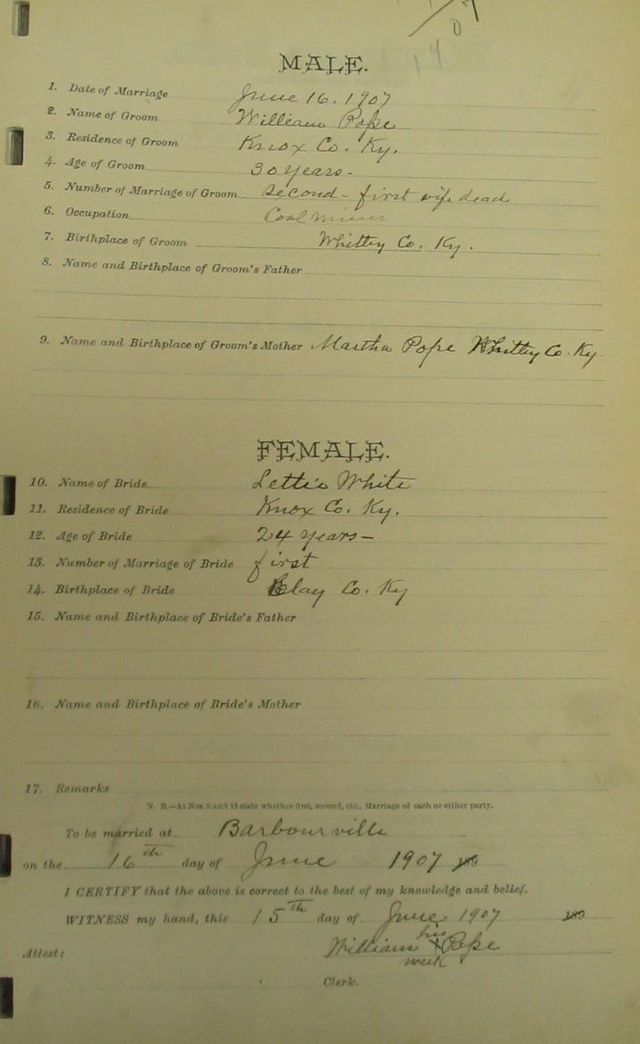 07
140
MALE.
1. Date of Marriage June 16. 1907
2. Name of Groom William Pope
3. Residence of Groom Knox Co. Ky.
4. Age of Groom 30 years-
5. Number of Marriage of Groom Second - first wife dead
6. Occupation Coal miner
7. Birthplace of Groom Whitley Co. Ky.
8. Name and Birthplace of Groom's Father
9. Name and Birthplace of Groom's Mother Martha Pope Whitley Co. Ky
FEMALE.
10. Name of Bride Lettie White
11. Residence of Bride Knox Co. Ky.
12. Age of Bride 24 years-
13. Number of Marriage of Bride first
14. Birthplace of Bride Clay Co. Ky
15. Name and Birthplace of Bride's Father
16. Name and Birthplace of Bride's Mother
17. Remarks
N. B.—At Nos 5 and 13 state whether first, second, etc., Marriage of each or either party.
To be married at Barbourville
on the 16th day of June 1907 189
I CERTIFY that the above is correct to the best of my knowledge and belief.
WITNESS my hand, this 15th day of June 1907 189
his
Attest: William X Pope
mark
Clerk.